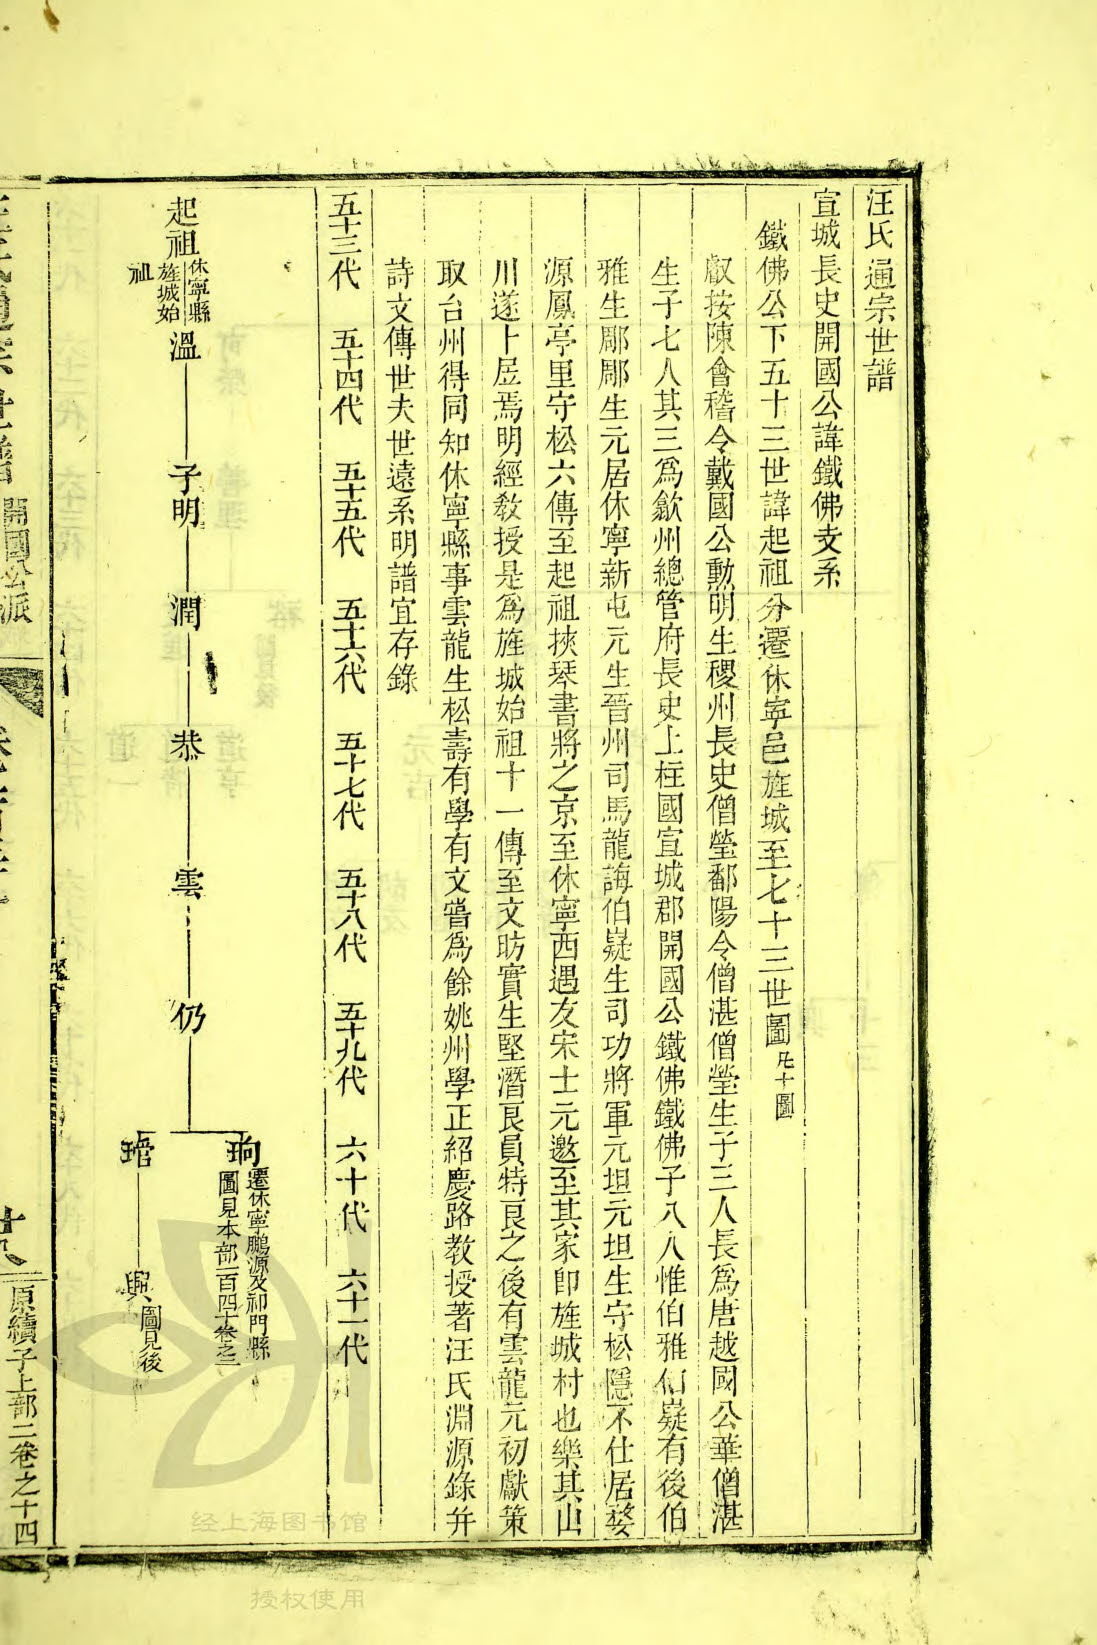 汪氏通宗世譜
宣城長史開國公諱鐵佛支系
鐵佛公下五十三世諱起祖分遷休寧邑旌城至七十三世圖凡十圖
叡按陳會稽令戴國公勲明生稷州長史僧瑩鄱陽令僧湛僧瑩生子三人長爲唐越國公華僧湛
生子七人其三爲歙州總管府長史上柱國宣城郡開國公鐵佛鐵佛子八人惟伯雅伯嶷有後伯
雅生郿郿生元居休寧新屯元生晉州司馬龍誨伯嶷生司功將軍元坦元坦生守松隱不仕居婺
源鳳亭里守松六傳至起祖挾琴書將之京至休寧西遇友宋士元邀至其家卽旌城村也樂其山
川遂卜居焉明經教授是爲旌城始祖十一傳至文昉實生堅潛艮員特艮之後有雲龍元初獻策
取台州得同知休寧縣事雲龍生松壽有學有文甞爲餘姚州學正紹慶路教授著汪氏淵源錄并
詩文傳世夫世遠系明譜宜存錄
五十三代 五十四代 五十五代 五十六代 五十七代 五十八代 五十九代 六十代 六十一代
起祖 休寧縣旌城始祖 溫 子明 潤 恭 雲 仍 珦 遷休寧鵬源及祁門縣圖見本部一百四十卷之二
琣 興 圖見後
汪氏通宗世譜 開國公派
原續子上部二卷之十四
经上海图书馆
授权使用